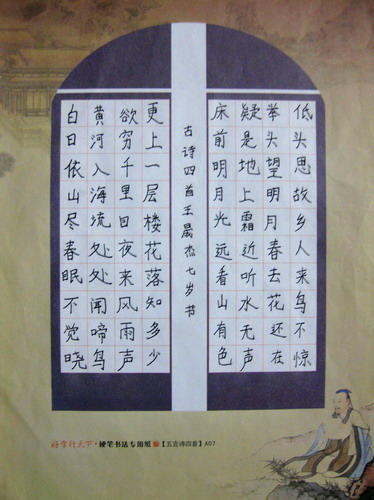 白日依山尽春眠不觉晓
黄河入海流处处闻啼鸟
欲穷千里目夜来风雨声
更上一层楼花落知多少
古诗四首王晨杰七岁书
床前明月光远看山有色
疑是地上霜近听水无声
举头望明月春去花还在
低头思故乡人来鸟不惊
好字行天下·硬笔书法专用纸【五言诗四首】A07